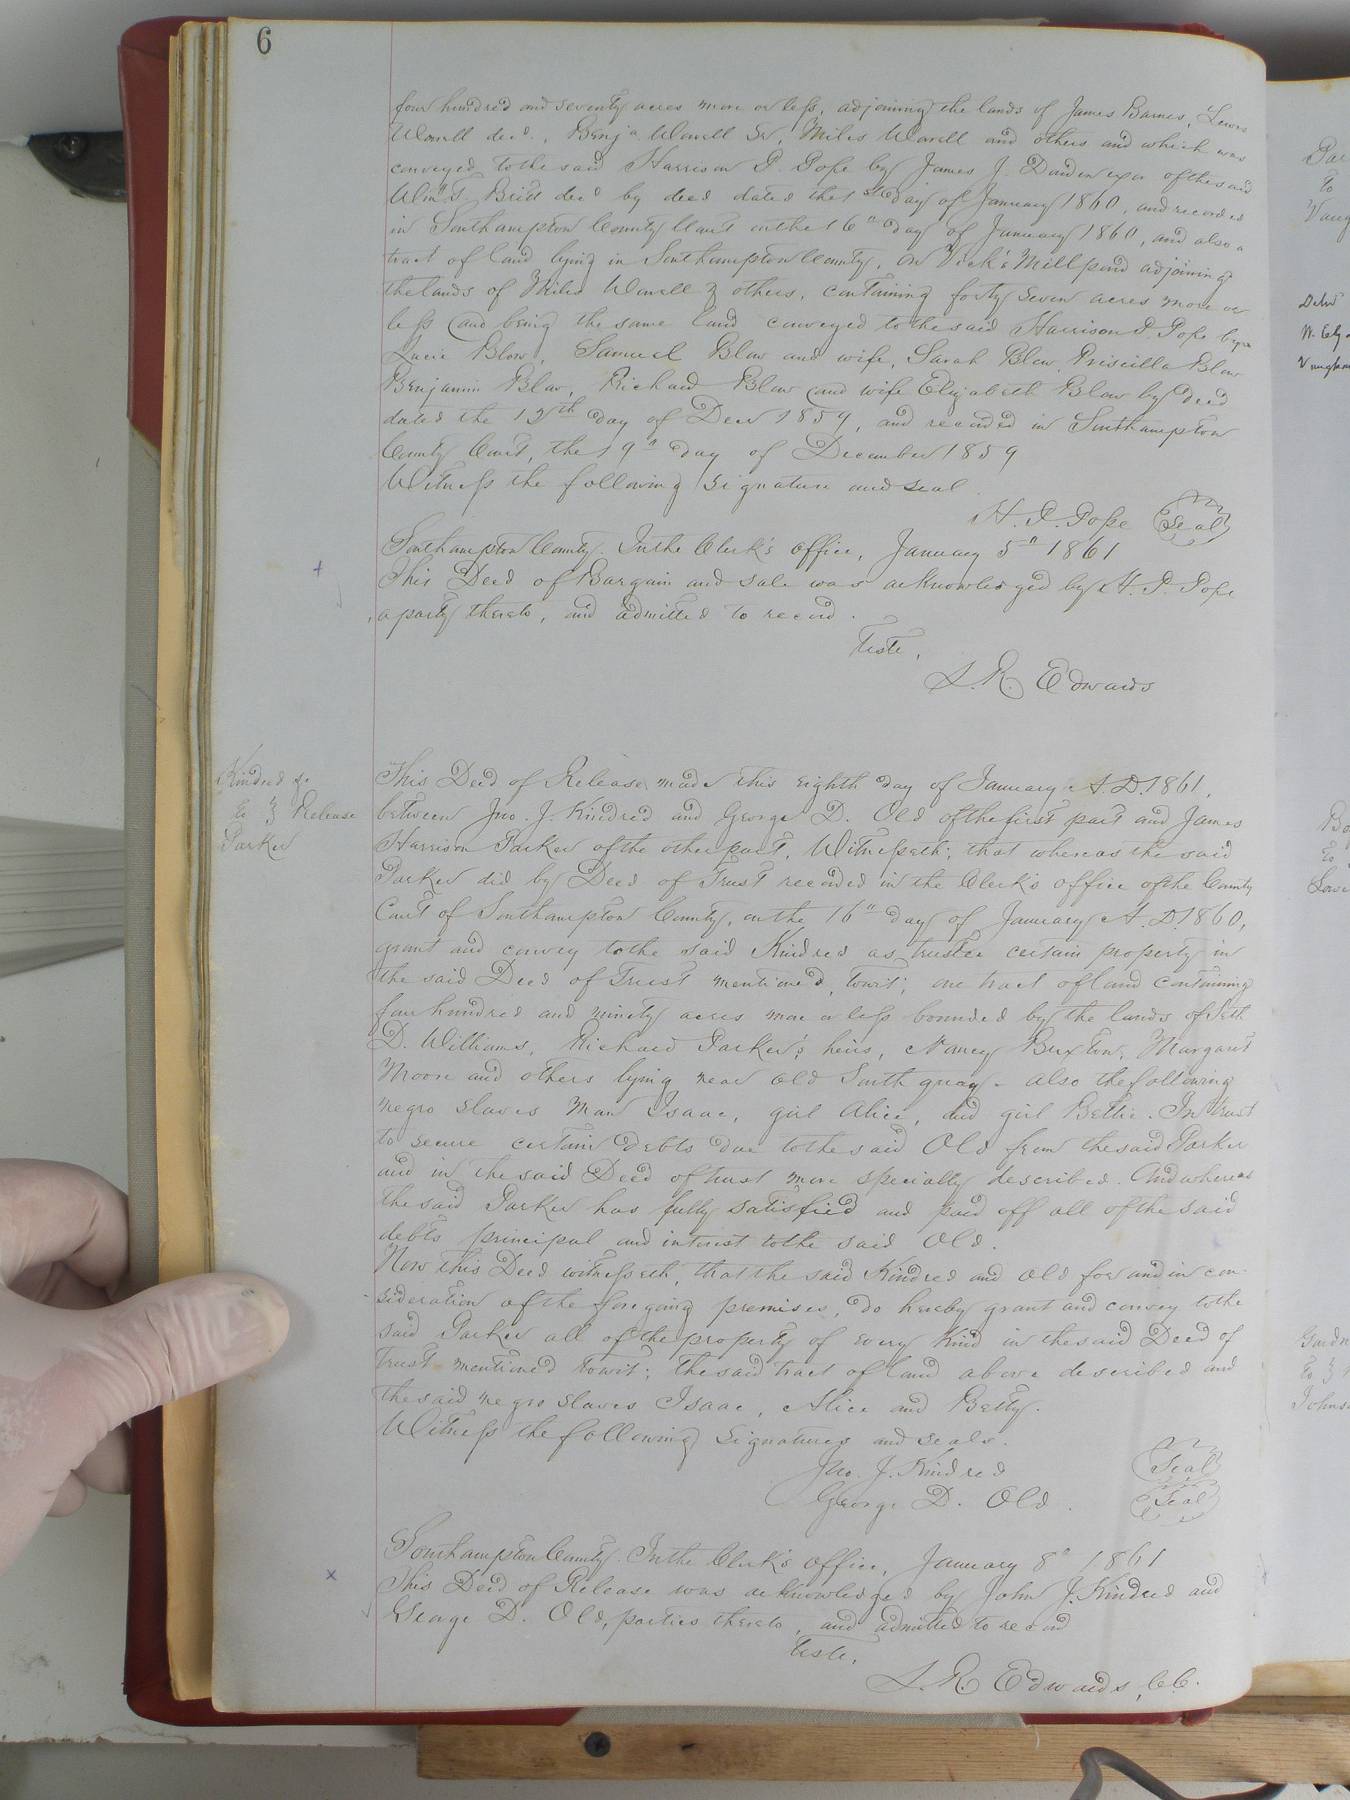 6
four hundred and seventy acres more or less, adjoining the lands of James Barnes, Lewis
Worrell decd., Benja Worrell Sr, Miles Worrell and others and which was
conveyed to the said Harrison P. Pope by James J. Darden exor of the said
Wm T. Britt decd by deed dated the 1st day of January 1860, and recorded
in Southampton County Court on the 16th day of January 1860, and also a
tract of land lying in Southampton County, on Vick's Mill pond adjoining
the lands of Miles Worrell & others, containing forty seven acres more or
less and being the same land conveyed to the said Harrison P. Pope by
Lucie Blow, Samuel Blow and wife, Sarah Blow, Priscilla Blow
Benjamin Blow, Richard Blow and wife Elizabeth Blow by deed
dated the 13th day of Decr 1859, and recorded in Southampton
County Court, the 19th day of December 1859
Witness the following signature and seal.
H. P. Pope Seal
Southampton County. In the Clerk's office, January 5th 1861
This Deed of Bargain and sale was acknowledged by H. P. Pope
a party thereto, and admitted to record.
Teste,
L. R. Edwards
Kindred &c
to } Release
Parker
This Deed of Release made this eighth day of January A. D. 1861,
between Jno. J. Kindred and George D. Old of the first part and James
Harrison Parker of the other part, Witnesseth; that whereas the said
Parker did by Deed of Trust recorded in the Clerk's office of the County
Court of Southampton County, on the 16th day of January A. D. 1860,
grant and convey to the said Kindred as trustee certain property in
the said Deed of Trust mentioned, towit; one tract of land containing
four hundred and ninety acres more or less bounded by the lands of Seth
D. Williams, Richard Parker's heirs, Nancy Buxton, Margaret
Moore and others lying near old South quay - also the following
negro slaves Man Isaac, girl Alice, and girl Bettie. In trust
to secure certain debts due to the said Old from the said Parker
and in the said Deed of trust more specially described. And whereas
the said Parker has fully satisfied and paid off all of the said
debts principal and interest to the said Old.
Now this Deed witnesseth, that the said Kindred and Old for and in con-
sideration of the foregoing premises, do hereby grant and convey to the
said Parker all of the property of every kind in the said Deed of
Trust mentioned towit; the said tract of land above described and
the said negro slaves Isaac, Alice and Betty.
Witness the following signatures and seals.
Jno. J. Kindred Seal
George D. Old. Seal
Southampton County. In the Clerk's office, January 8th 1861
This Deed of Release was acknowledged by John J. Kindred and
George D. Old, parties thereto, and admitted to record
Teste,
L. R. Edwards, C.C.